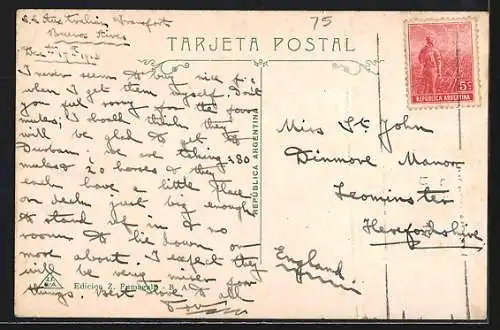 75
Transport
Buenos Aires
TARJETA POSTAL
I never seem to buy nice p.c
when I get them myself. Don't
you feel sorry for the poor
mules, I should think they
will be glad to get to
Durban. we are taking 280
mules & 20 horses & they
each have a little place
on deck just big enough
to stand up in & no
room to lie down or
move about. I expect they
will be very miser poor
things. Best love to all
REPÚBLICA ARGENTINA
Edicion Z. Fumagalli - B. A.
5 Cs
REPUBLICA ARGENTINA
Miss St. John
Dinmore Manor
Leominster
Herefordshire
England